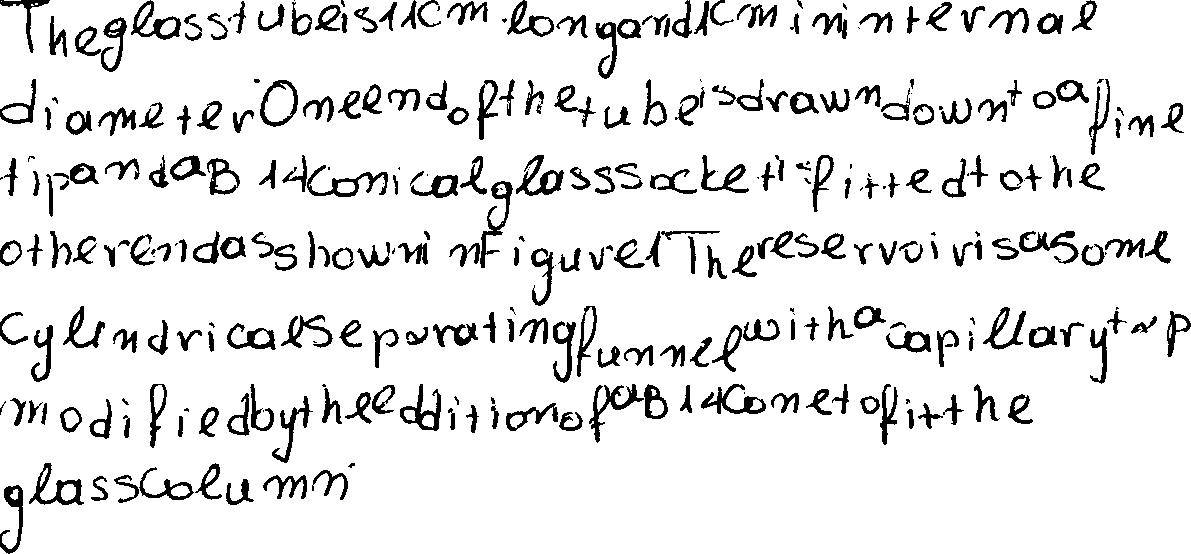 The glass tube is 11cm long and 1cm in internal
diameter One end of the tube is drawn down to a fine
tip and a B 14 conical glass socket is fitted to the
other end as shown in Figure 1 The reservoir is a 50 me
cylindrical separating funnel with a capillary tap
modified by the eddition of a B 14 cone to fit the
glass column